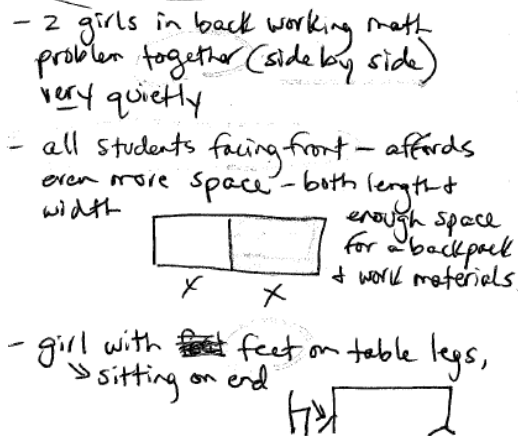 - 2 girls in back working math
problem together (side by side)
very quietly
- all students facing front - affords
even more space - both length +
width
enough space
for a backpack
+ work materials
X X
- girl with feet on table legs,
sitting on end